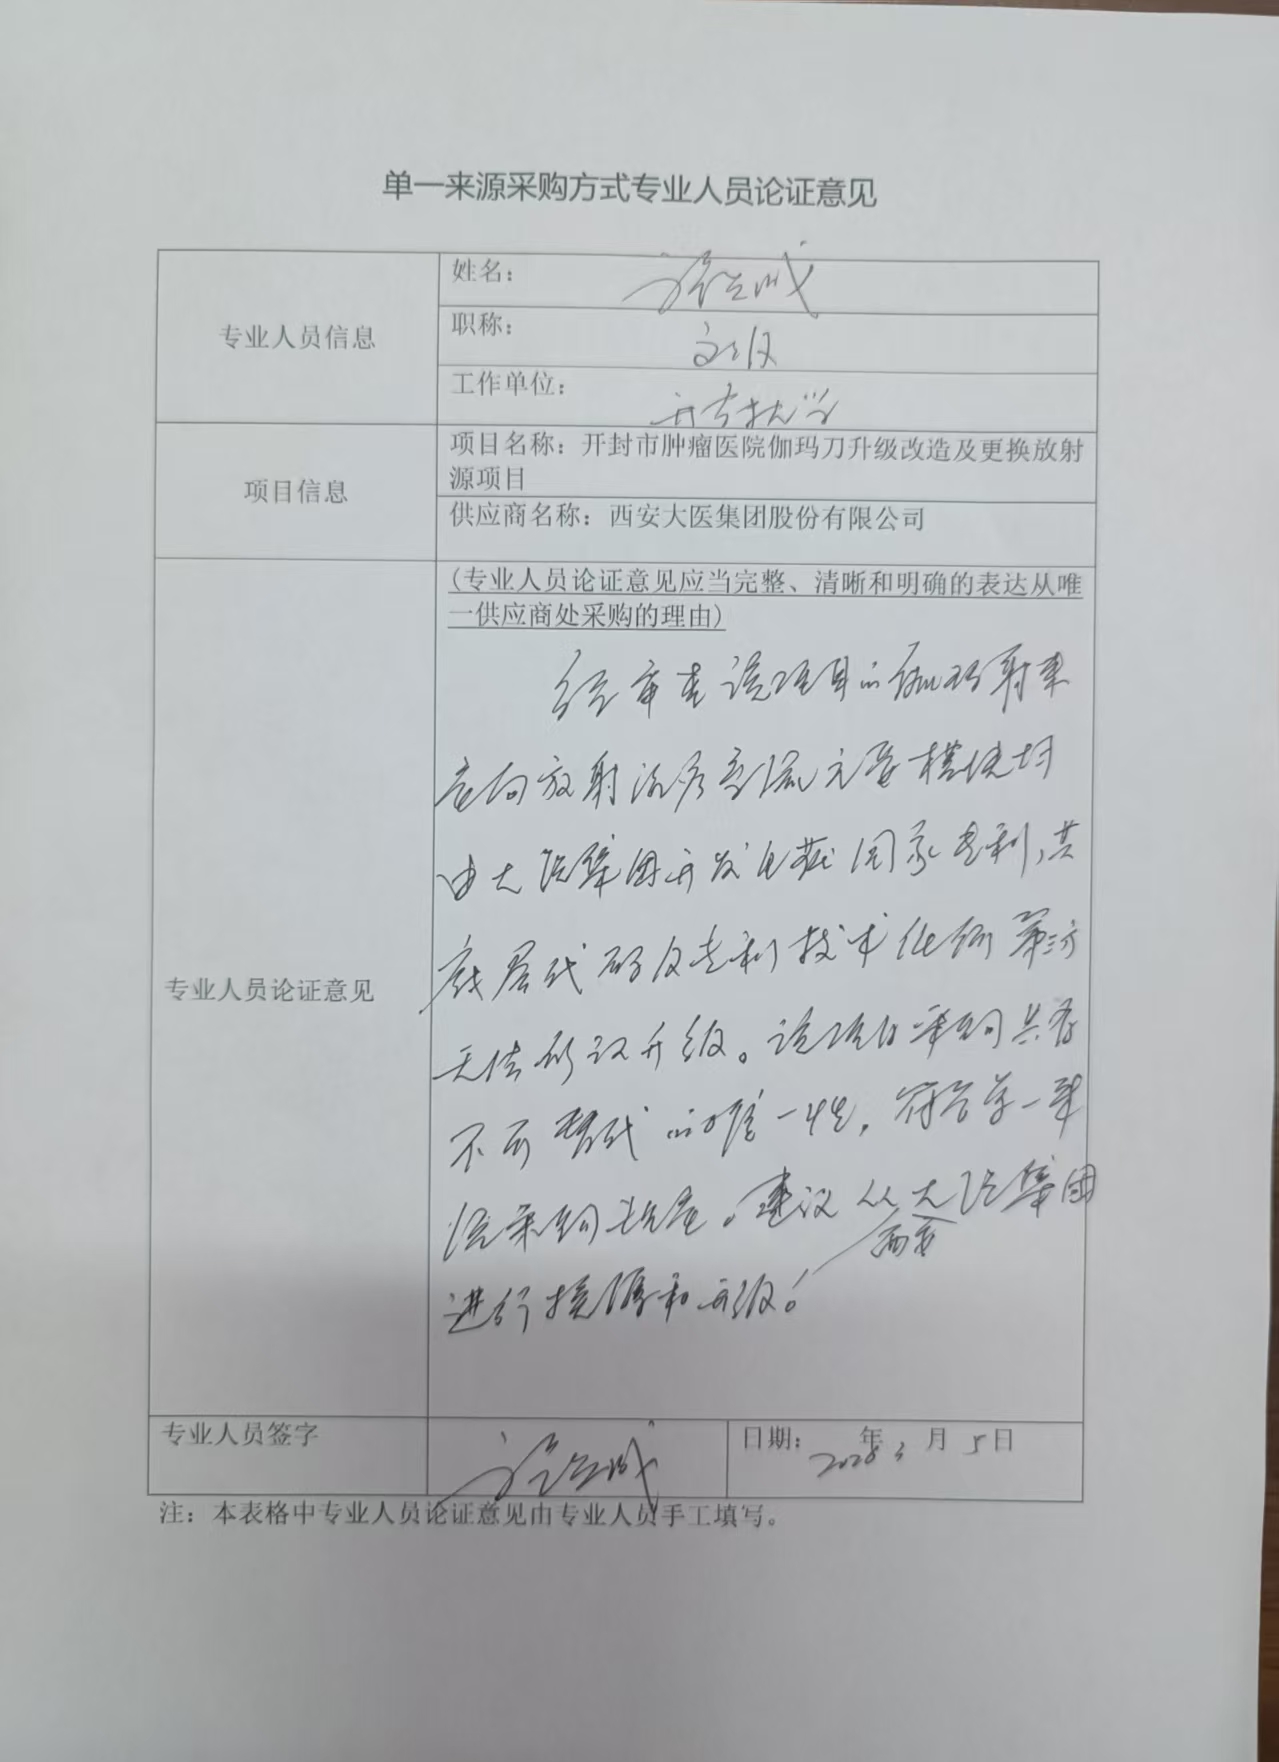 单一来源采购方式专业人员论证意见
专业人员信息
姓名：
职称：
工作单位：
项目信息
项目名称：开封市肿瘤医院伽玛刀升级改造及更换放射
源项目
供应商名称：西安大医集团股份有限公司
专业人员论证意见
(专业人员论证意见应当完整、清晰和明确的表达从唯
一供应商处采购的理由)
经审查该项目的伽玛射束
定向放射治疗系统主要模块均
由大医集团开发且获国家专利，其
底层代码及专利技术任何第三方
无法修改升级。该项目采购具有
不可替代的唯一性，符合单一来
源采购规定。建议从西安大医集团
进行换源和升级！
专业人员签字
日期： 年 3 月 5日
注：本表格中专业人员论证意见由专业人员手工填写。